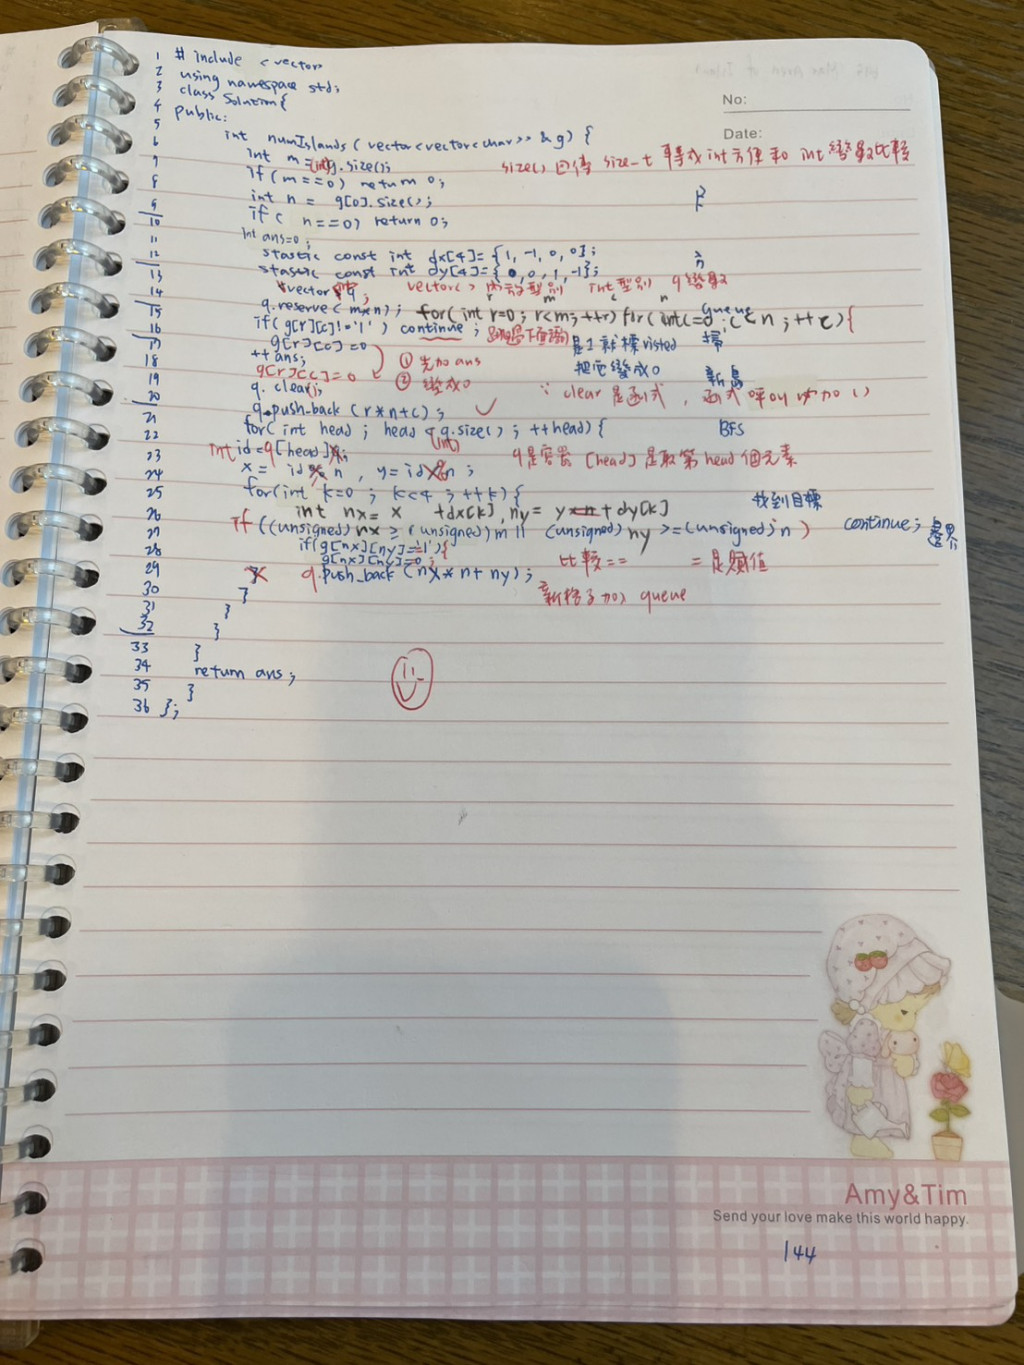 No:
Date:
1 # include <vector>
2 using namespace std;
3 class Solution{
4 public:
5
6 int numIslands(vector<vector<char>> & g) {
7 int m = (int)g.size(); size() 回傳 size_t 轉成int方便和 int 變數比較
8 if (m==0) return 0;
9 int n = g[0].size();
10 if( n==0) return 0;
11 int ans=0;
12 stastic const int dx[4]= {1, -1, 0, 0};
13 stastic const int dy[4]={0, 0, 1, -1};
14 vector q; vector<> 內 型別 int型別 q變數
15 q.reserve(m*n); for(int r=0; r<m; ++r) for(int c=0; c<n; ++c){ queue
16 if(g[r][c]!='1') continue; 掃
17 g[r][c]=0 是1就標visted
18 ++ans; ① 先加ans 把它變成0
19 g[r][c]=0 ② 變成0 新島
20 q.clear(); ∵ clear 是函式, 函式呼叫 加 ()
21 q.push_back (r*n+c);
22 for(int head; head < q.size(); ++head){ BFS
(int)
23 int id=q[head]; q是容器 [head] 是取第head個元素
24 x= id n, y= id n;
25 for(int k=0; k<4; ++k){ 找到目標
26 int nx= x +dx[k], ny= y*n+dy[k]
27 if ((unsigned) nx ≥ (unsigned) m || (unsigned) ny >=(unsigned) n) continue; 邊界
28 if(g[nx][ny]=='1'){
g[nx][ny]=0; 比較== = 是賦值
29 } q.push_back (nx*n+ny);
30 } 新格子加入 queue
31 }
32 }
33 }
34 return ans;
35 }
36 };
Amy&Tim
Send your love make this world happy.
144